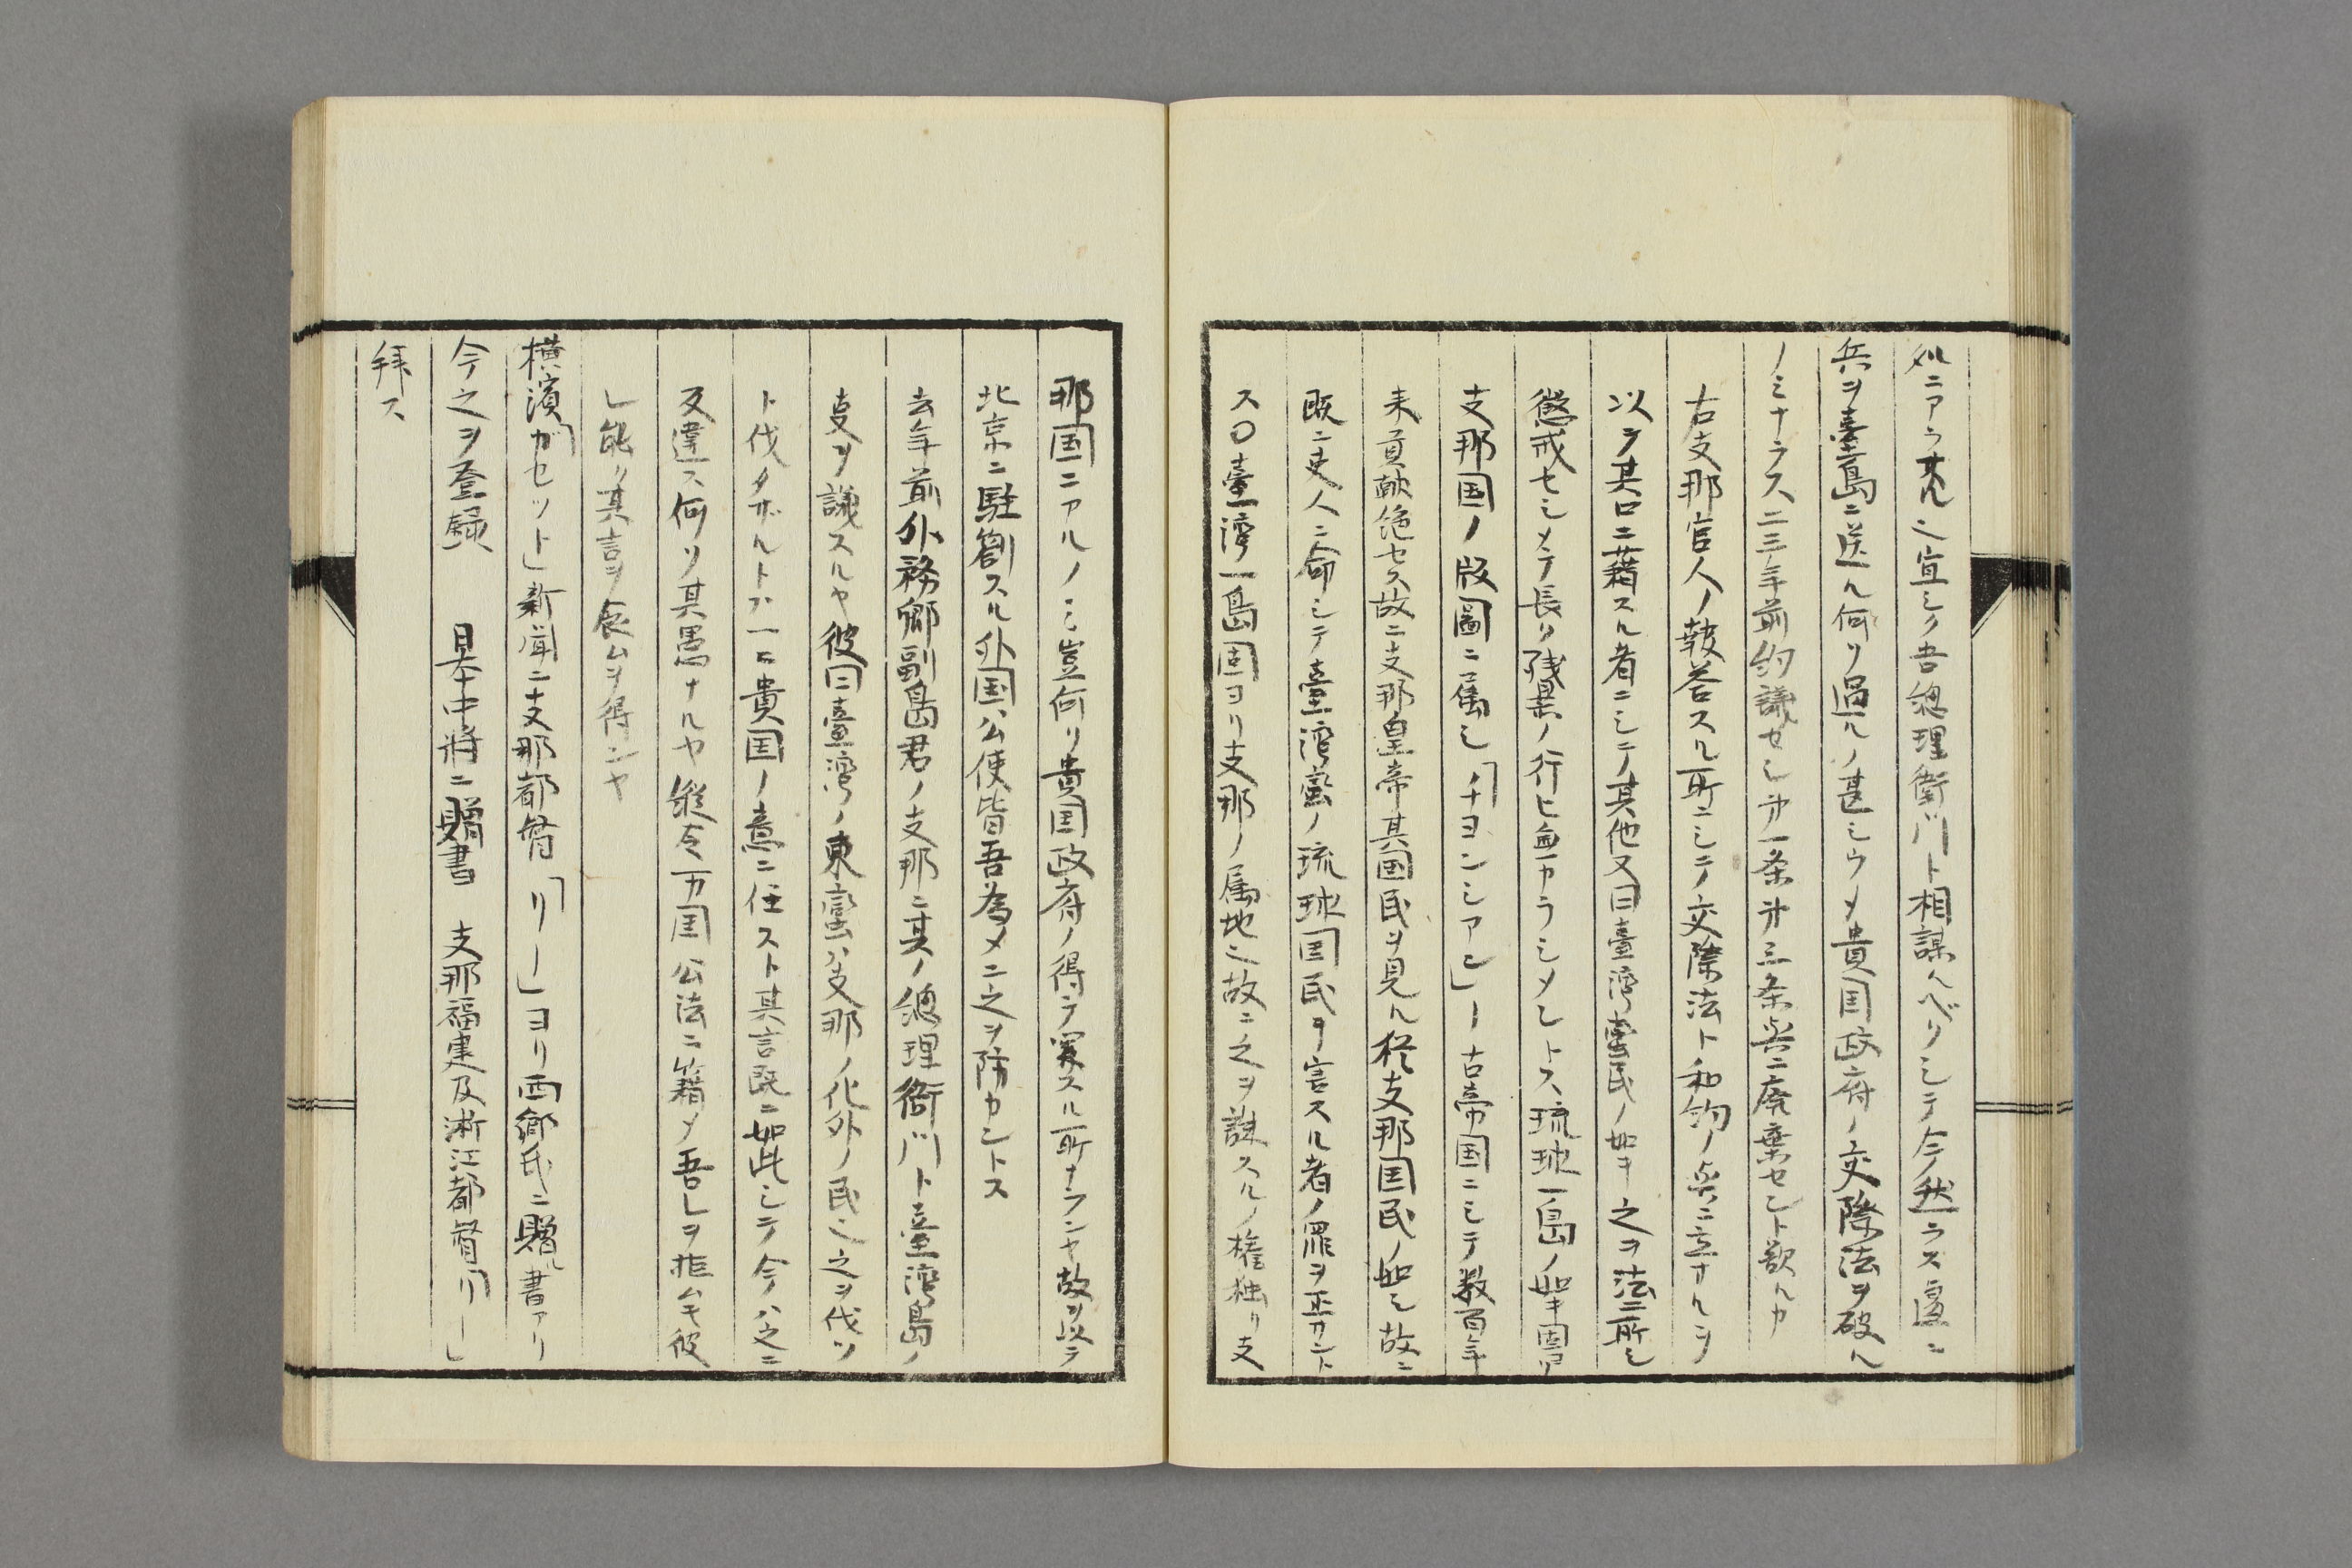 ニアラ宜シク吾總理衙門ト相謀ルベクシテ今然ラス遽ニ
兵ヲ臺島ニ送ル何ソ過ルノ甚シウメ貴国政府ノ交際法ヲ破ル
ノミナラス二三年前約議セシ第一条第三条共ニ廃棄セント欲ルカ
右支那官人ノ報答スル所ニシテ交際法ト和約ノ共ニ立サルヲ
以テ其口ニ藉スル者ニシテ其他又曰臺湾蛮民ノ如キ之ヲ法ニ所シ
懲戒セシメテ長ク残暴ノ行ヒ無カラシメントス琉球一島ノ如キ固ヨリ
支那国ノ版圖ニ属シ「チヨンシアン」ノ古帝国ニシテ数百年
来貢献絶セス故ニ支那皇帝其国民ヲ見ル猶支那国民ノ如シ故ニ
既ニ吏人ニ命シテ臺湾蛮ノ琉球国民ヲ害スル者ノ罪ヲ正サント
ス〇臺湾一島固ヨリ支那ノ属地ニ故ニ之ヲ誅スルノ権独リ支
那国ニアルノミ豈何ソ貴国政府ノ得テ関スル所ナランヤ故ヲ以テ
北京ニ駐劄スル外国公使皆吾為メニ之ヲ防カントス
去年前外務卿副島君ノ支那ニ其ノ總理衙門ト臺湾島ノ
支ヲ議スルヤ彼曰臺湾ノ東蛮ハ支那ノ化外ノ民ニ之ヲ伐ツ
ト伐タサルトハ一ニ貴国ノ意ニ任スト其言既ニ如此シテ今ハ之ニ
反違ス何ソ其愚ナルヤ縦令万国公法ニ籍メ吾レヲ拒ムモ彼
レ能ク其言ヲ食ムヲ得ンヤ
横濱「ガセット」新聞ニ支那都督「リー」ヨリ西郷氏ニ贈ル書アリ
今之ヲ登録 日本中将ニ贈書 支那福建及浙江都督「リー」
拜ス